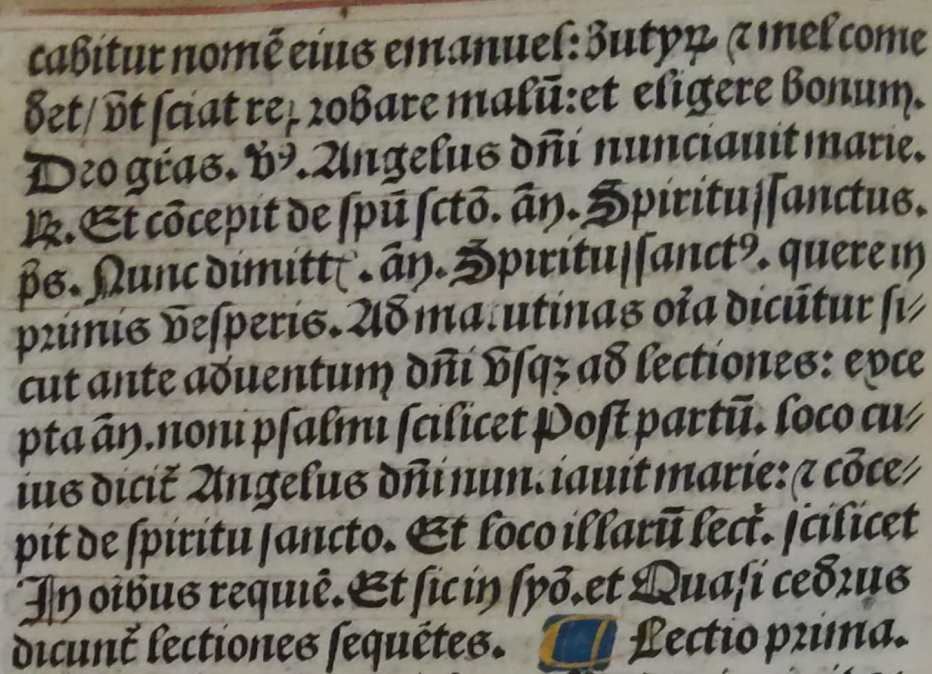 cabitur nomē eius emanuel: Butyrꝝ ⁊ mel come
det/ vt sciat reprobare malū: et eligere bonum.
Deo grās. v̄ꝰ. Angelus dn̄i nunciauit marie.
℟. Et cōcepit de spū sctō. an̄. Spiritussanctus.
p̄s. Nunc dimittꝭ. an̄. Spiritussanctꝰ. quere in
primis vesperis. Ad matutinas oīa dicūtur si⸗
cut ante aduentum dn̄i vsqꝫ ad lectiones: exce
pta an̄. noni psalmi scilicet Post partū. loco cu⸗
ius dicit̄ Angelus dn̄i nunciauit marie: ⁊ cōce⸗
pit de spiritu sancto. Et loco illarū lect̄. scilicet
In oībus requiē. Et sic in sypō. et Quasi cedrus
dicunt̄ lectiones sequētes. Lectio prima.